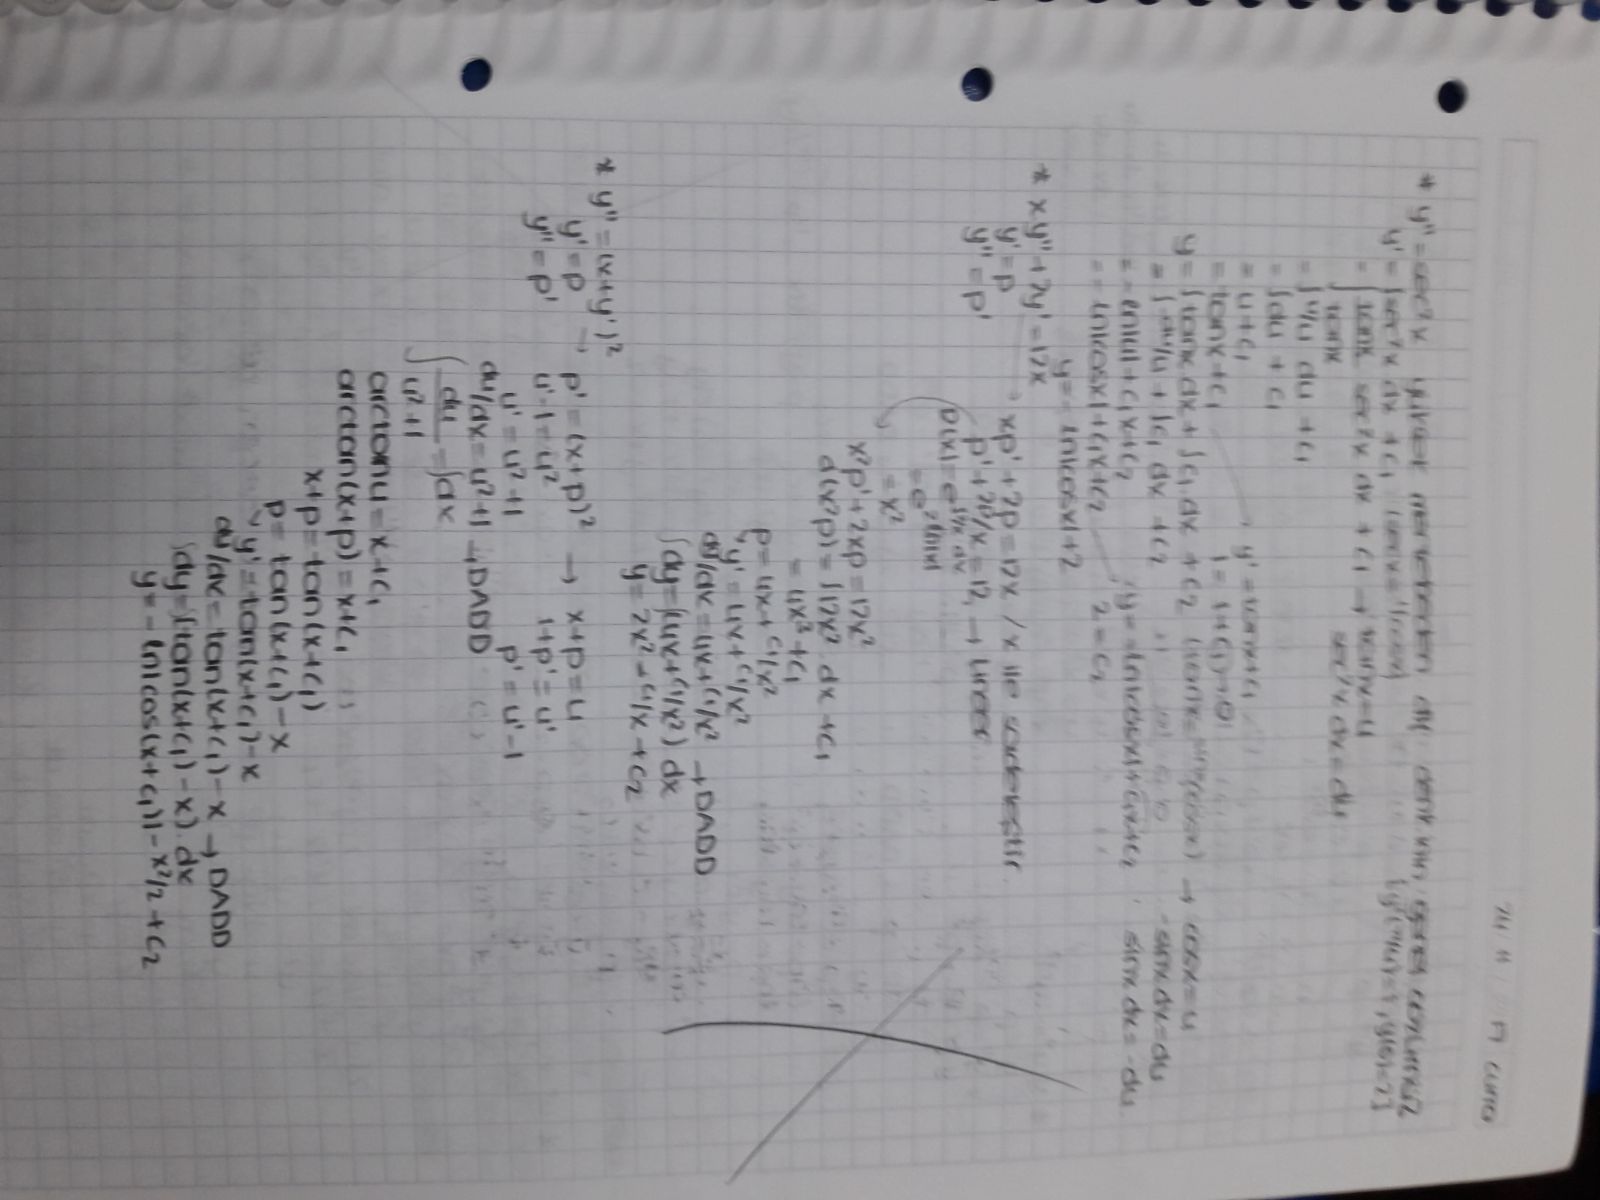 24 11 17 cuma
* y'' = sec²x yüksek mertebeden dif. denk.nin genel çözümü?
y' = ∫sec²x dx + c₁ (secx = 1/cosx) [y'(π/4)=1, y(0)=2]
= ∫ tanx/tanx sec²x dx + c₁ → tanx = u
sec²x dx = du
= ∫u/u du + c₁
= ∫du + c₁
= u + c₁ y' = tanx + c₁
= tanx + c₁ 1 = 1 + c₁ → 0
y = ∫tanx dx + ∫c₁ dx + c₂ (tanx = sinx/cosx) → cosx = u
= ∫-du/u + ∫c₁ dx + c₂ -sinx dx = du
= -ln|u| + c₁x + c₂ y = -ln|cosx| + c₁x + c₂ sinx dx = -du
= -ln|cosx| + c₁x + c₂ 2 = c₂
y = -ln|cosx| + 2
* xy'' + 2y' = 12x
y' = p → xp' + 2p = 12x / x ile sadeleştir
y'' = p' p' + 2p/x = 12 → Lineer
D(x) = e^∫2/x dx
= e^2ln|x|
= x²
x²p' + 2xp = 12x²
d(x²p) = ∫12x² dx + c₁
= 4x³ + c₁
p = 4x + c₁/x²
y' = 4x + c₁/x²
dy/dx = 4x + c₁/x² → DADD
∫dy = ∫(4x + c₁/x²) dx
y = 2x² - c₁/x + c₂
* y'' = (x+y')²
y' = p → p' = (x+p)² → x+p = u
y'' = p' u'-1 = u² 1+p' = u'
u' = u²+1 p' = u'-1
du/dx = u²+1 → DADD
∫ du/u²+1 = ∫dx
arctanu = x+c₁
arctan(x+p) = x+c₁
x+p = tan(x+c₁)
p = tan(x+c₁) - x
y' = tan(x+c₁) - x
dy/dx = tan(x+c₁) - x → DADD
∫dy = ∫(tan(x+c₁) - x) dx
y = -ln|cos(x+c₁)| - x²/2 + c₂